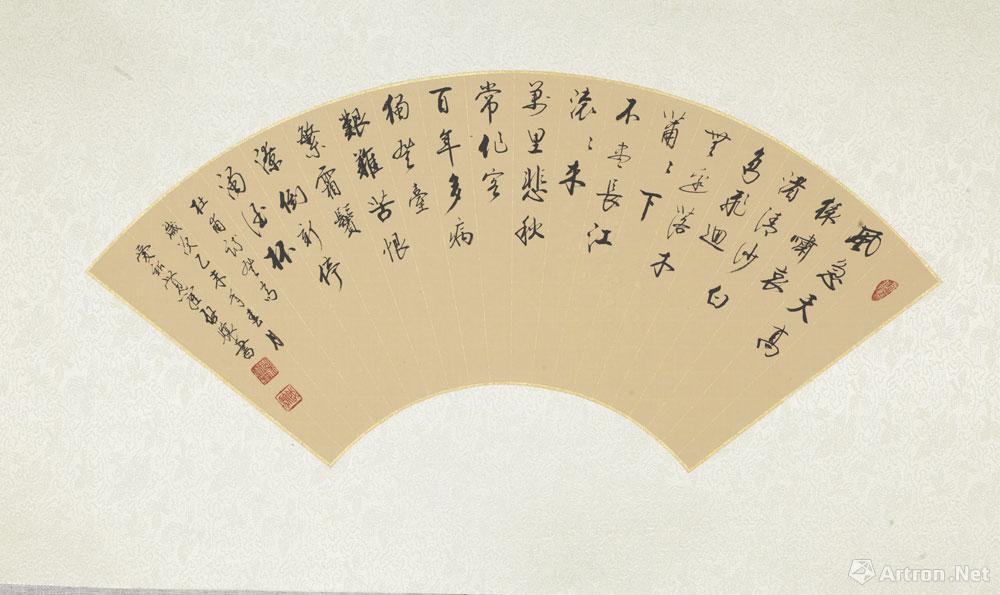 風急天高
猿嘯哀
渚清沙白
鳥飛迴
無邊落木
蕭〻下
不盡長江
滾〻來
萬里悲秋
常作客
百年多病
獨登臺
艱難苦恨
繁霜鬢
潦倒新停
濁酒杯
杜甫詩登高
歲次乙未年春月
愛新覺羅啟驤書
Artron.Net